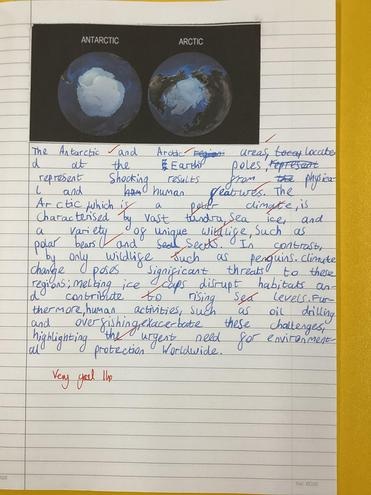 ANTARCTIC ARCTIC
The Antarctic and Arctic region areas, locate
d at the Earth poles, represent
represent Shocking results from the physica
l and human features. The
Arctic, which is a polar climate, is
characterised by vast tundra, sea ice, and
a variety of unique wildlife, such as
polar bears and Seals. In contrast,
by only wildlife such as penguins. Climate
change poses significant threats to these
regions; melting ice caps disrupt habitats an
d contribute to rising sea levels. Fur
thermore, human activities, such as oil drilling
and overfishing, exacerbate these challenges,
highlighting the urgent need for environment
al protection Worldwide.
Very good